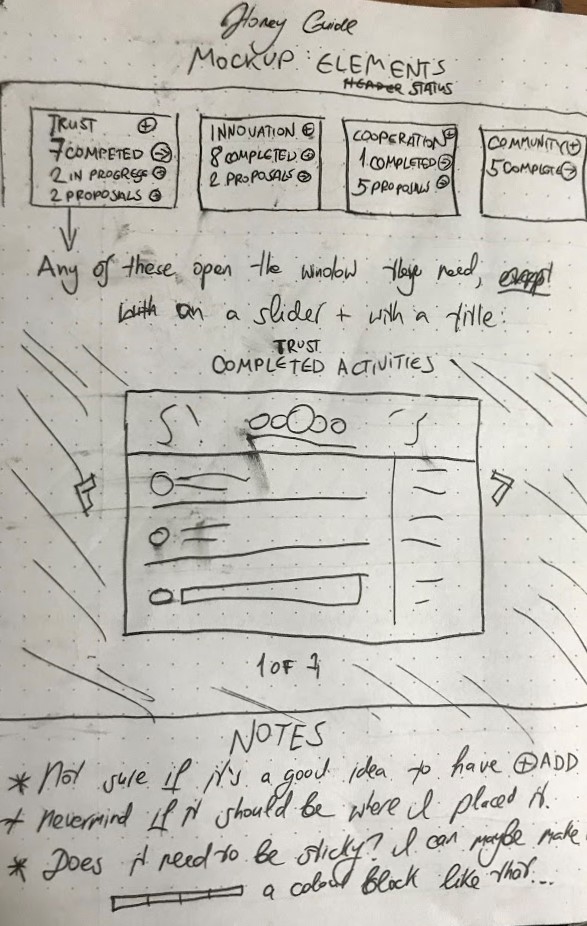 Honey Guide
MOCKUP ELEMENTS
HEADER STATUS
TRUST
7 COMPETED
2 IN PROGRESS
2 PROPOSALS
INNOVATION
8 COMPLETED
2 PROPOSALS
COOPERATION
1 COMPLETED
5 PROPOSALS
COMMUNITY
5 COMPLETE
Any of these open the window they need,
on a slider + with a title:
TRUST
COMPLETED ACTIVITIES
1 OF 7
NOTES
* Not sure if it's a good idea to have ⊕ ADD
+ nevermind if it should be where I placed it.
* Does it need to be sticky? I can maybe make
a colour block like that...